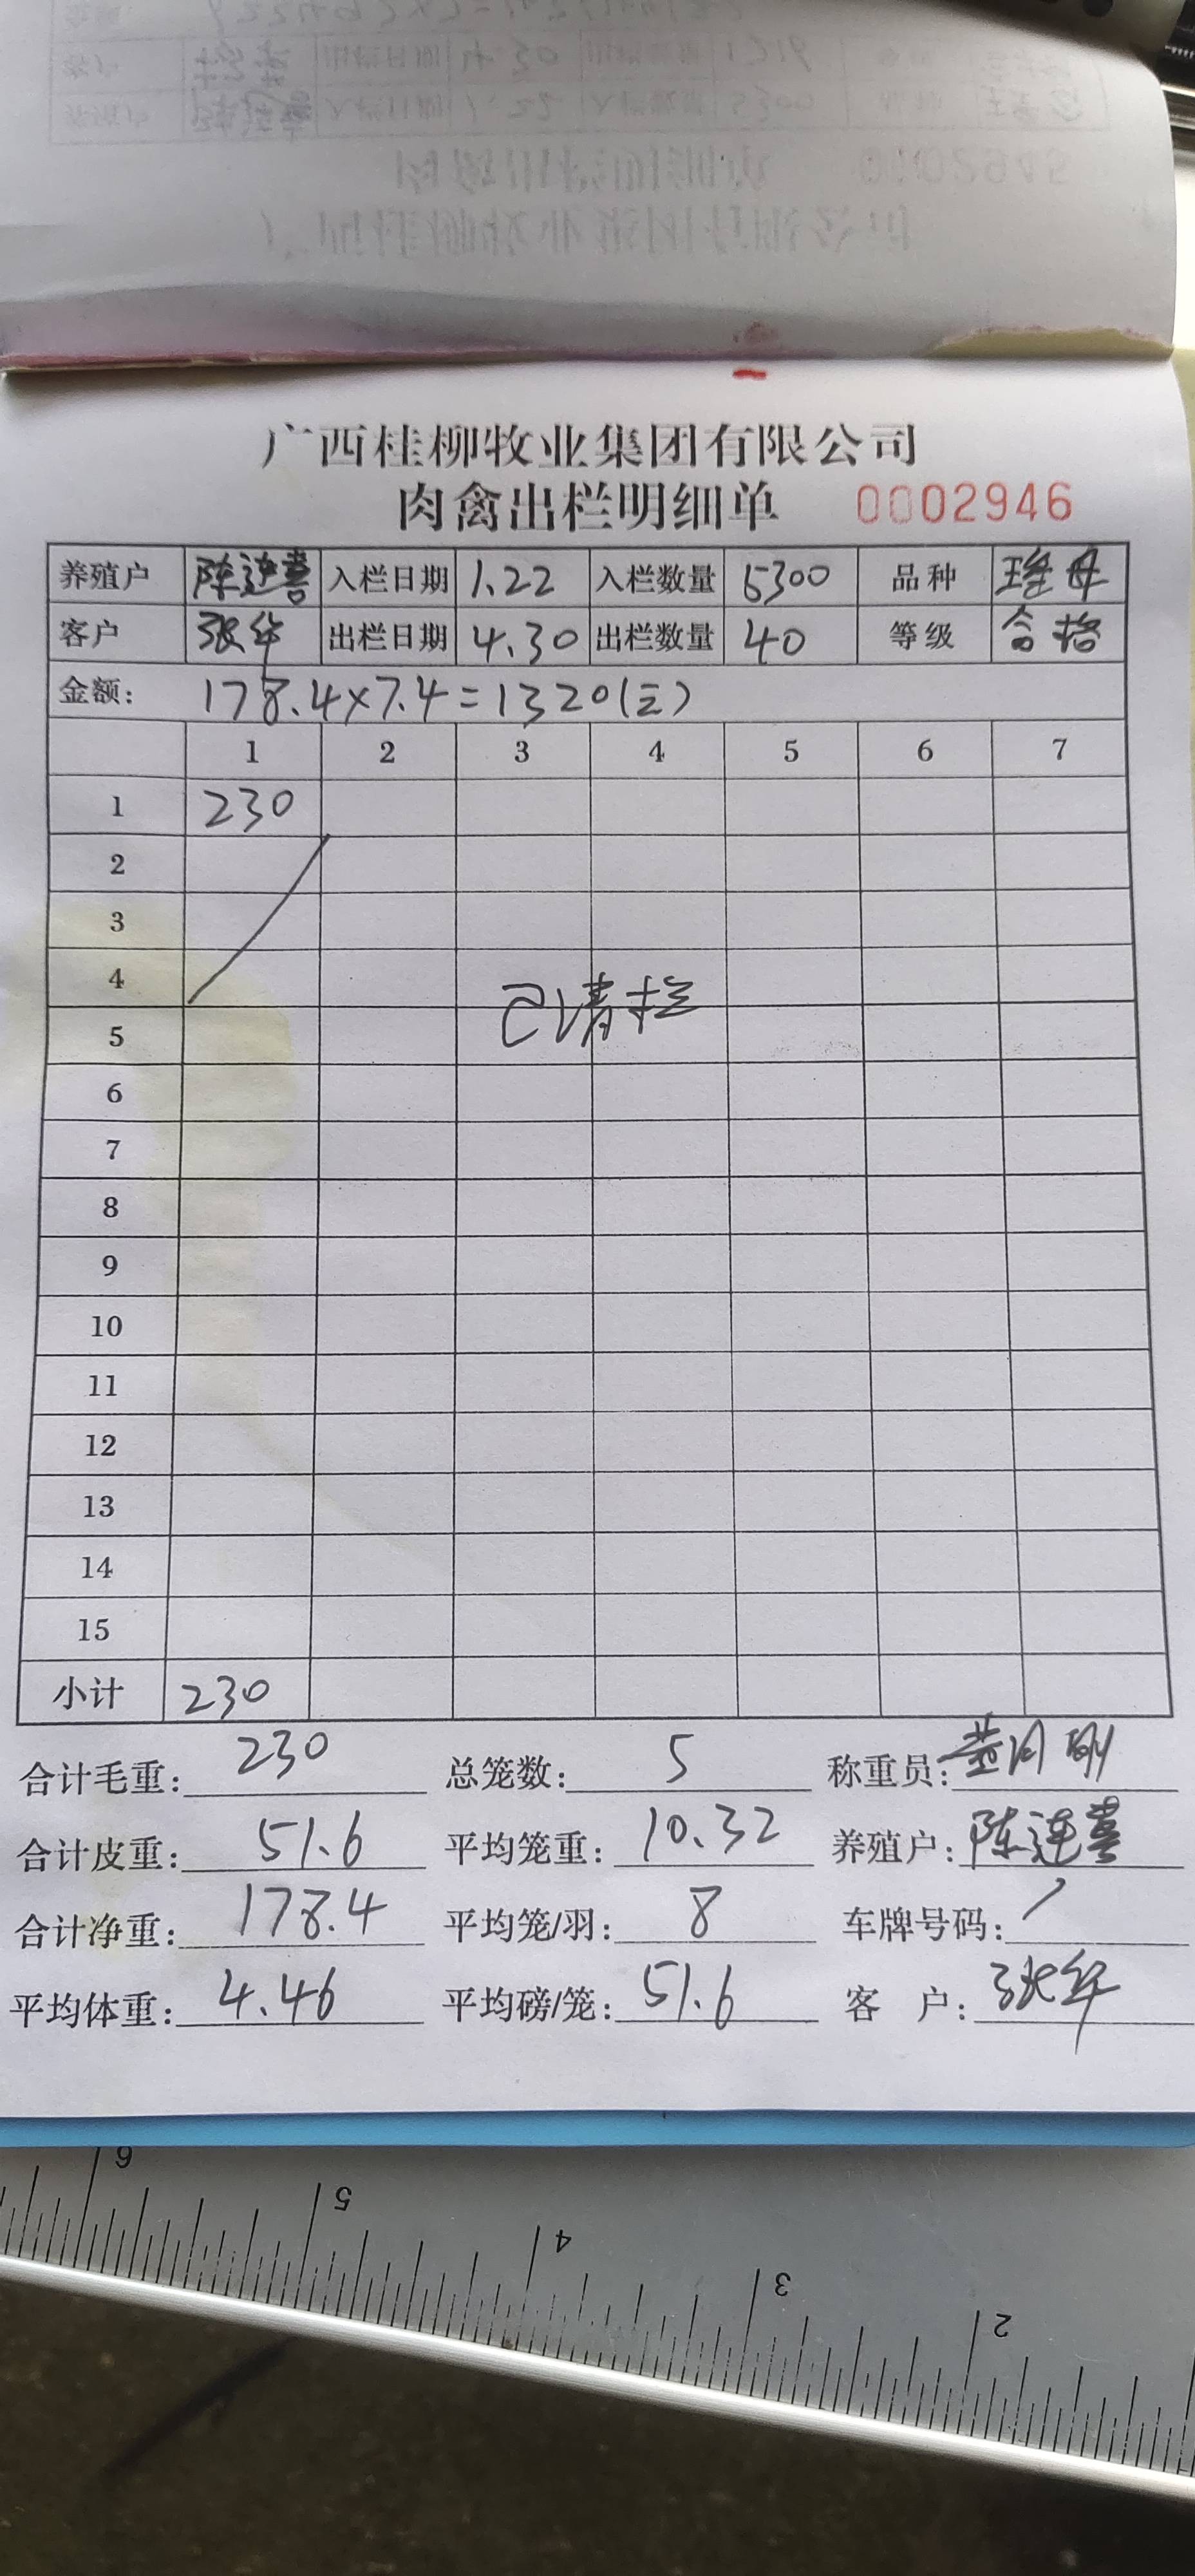 广西桂柳牧业集团有限公司
肉禽出栏明细单 0002946
养殖户 陈连喜 入栏日期 1.22 入栏数量 5300 品种
客户 张华 出栏日期 4.30 出栏数量 40 等级 合格
金额: 178.4×7.4=1320(元)
1 2 3 4 5 6 7
1 230
2
3
4
已清栏
5
6
7
8
9
10
11
12
13
14
15
小计 230
合计毛重: 230 总笼数: 5 称重员:
合计皮重: 51.6 平均笼重: 10.32 养殖户: 陈连喜
合计净重: 178.4 平均笼/羽: 8 车牌号码: /
平均体重: 4.46 平均磅/笼: 51.6 客 户: 张华
6 5 4 3 2